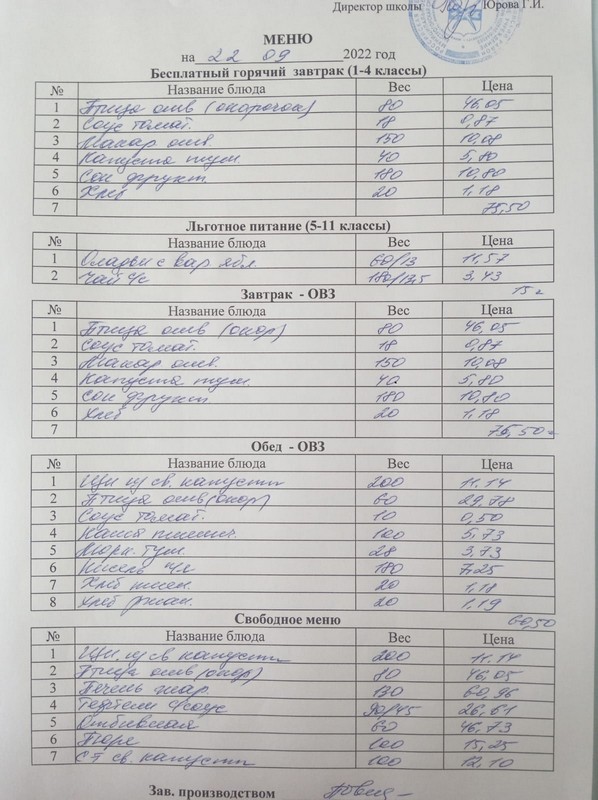 Директор школы Юрова Г.И.
МЕНЮ
на 22 09 2022 год
Бесплатный горячий завтрак (1-4 классы)
№ Название блюда Вес Цена
1 Птица отв (окорочок) 80 46,05
2 Соус томат. 18 0,87
3 Макар отв. 150 10,08
4 Капуста туш. 40 5,80
5 Сок фрукт 180 10,80
6 Хлеб 20 1,18
7 75,50
Льготное питание (5-11 классы)
№ Название блюда Вес Цена
1 Оладьи с вар ябл. 60/13 11,57
2 Чай с/с 180/13,5 3,43
15=
Завтрак - ОВЗ
№ Название блюда Вес Цена
1 Птица отв (окор) 80 46,05
2 Соус томат. 18 0,87
3 Макар отв. 150 10,08
4 Капуста туш. 40 5,80
5 Сок фрукт 180 10,80
6 Хлеб 20 1,18
7 75,50
Обед - ОВЗ
№ Название блюда Вес Цена
1 Щи из св. капусты 200 11.14
2 Птица отв (окор) 60 29,78
3 Соус томат. 10 0,50
4 Каша пшенич. 100 5,73
5 Морк. туш. 28 3,73
6 Кисель 180 7,25
7 Хлеб пшен. 20 1,18
8 Хлеб ржан. 20 1,19
60,50
Свободное меню
№ Название блюда Вес Цена
1 Щи из св капусты 200 11.14
2 Птица отв (окор) 80 46,05
3 Печень жар. 130 60,96
4 Тефтели с/соус 90/45 26,61
5 Отбивная 60 46,73
6 Пюре 100 15,25
7 С-т св. капусты 100 12,10
Зав. производством